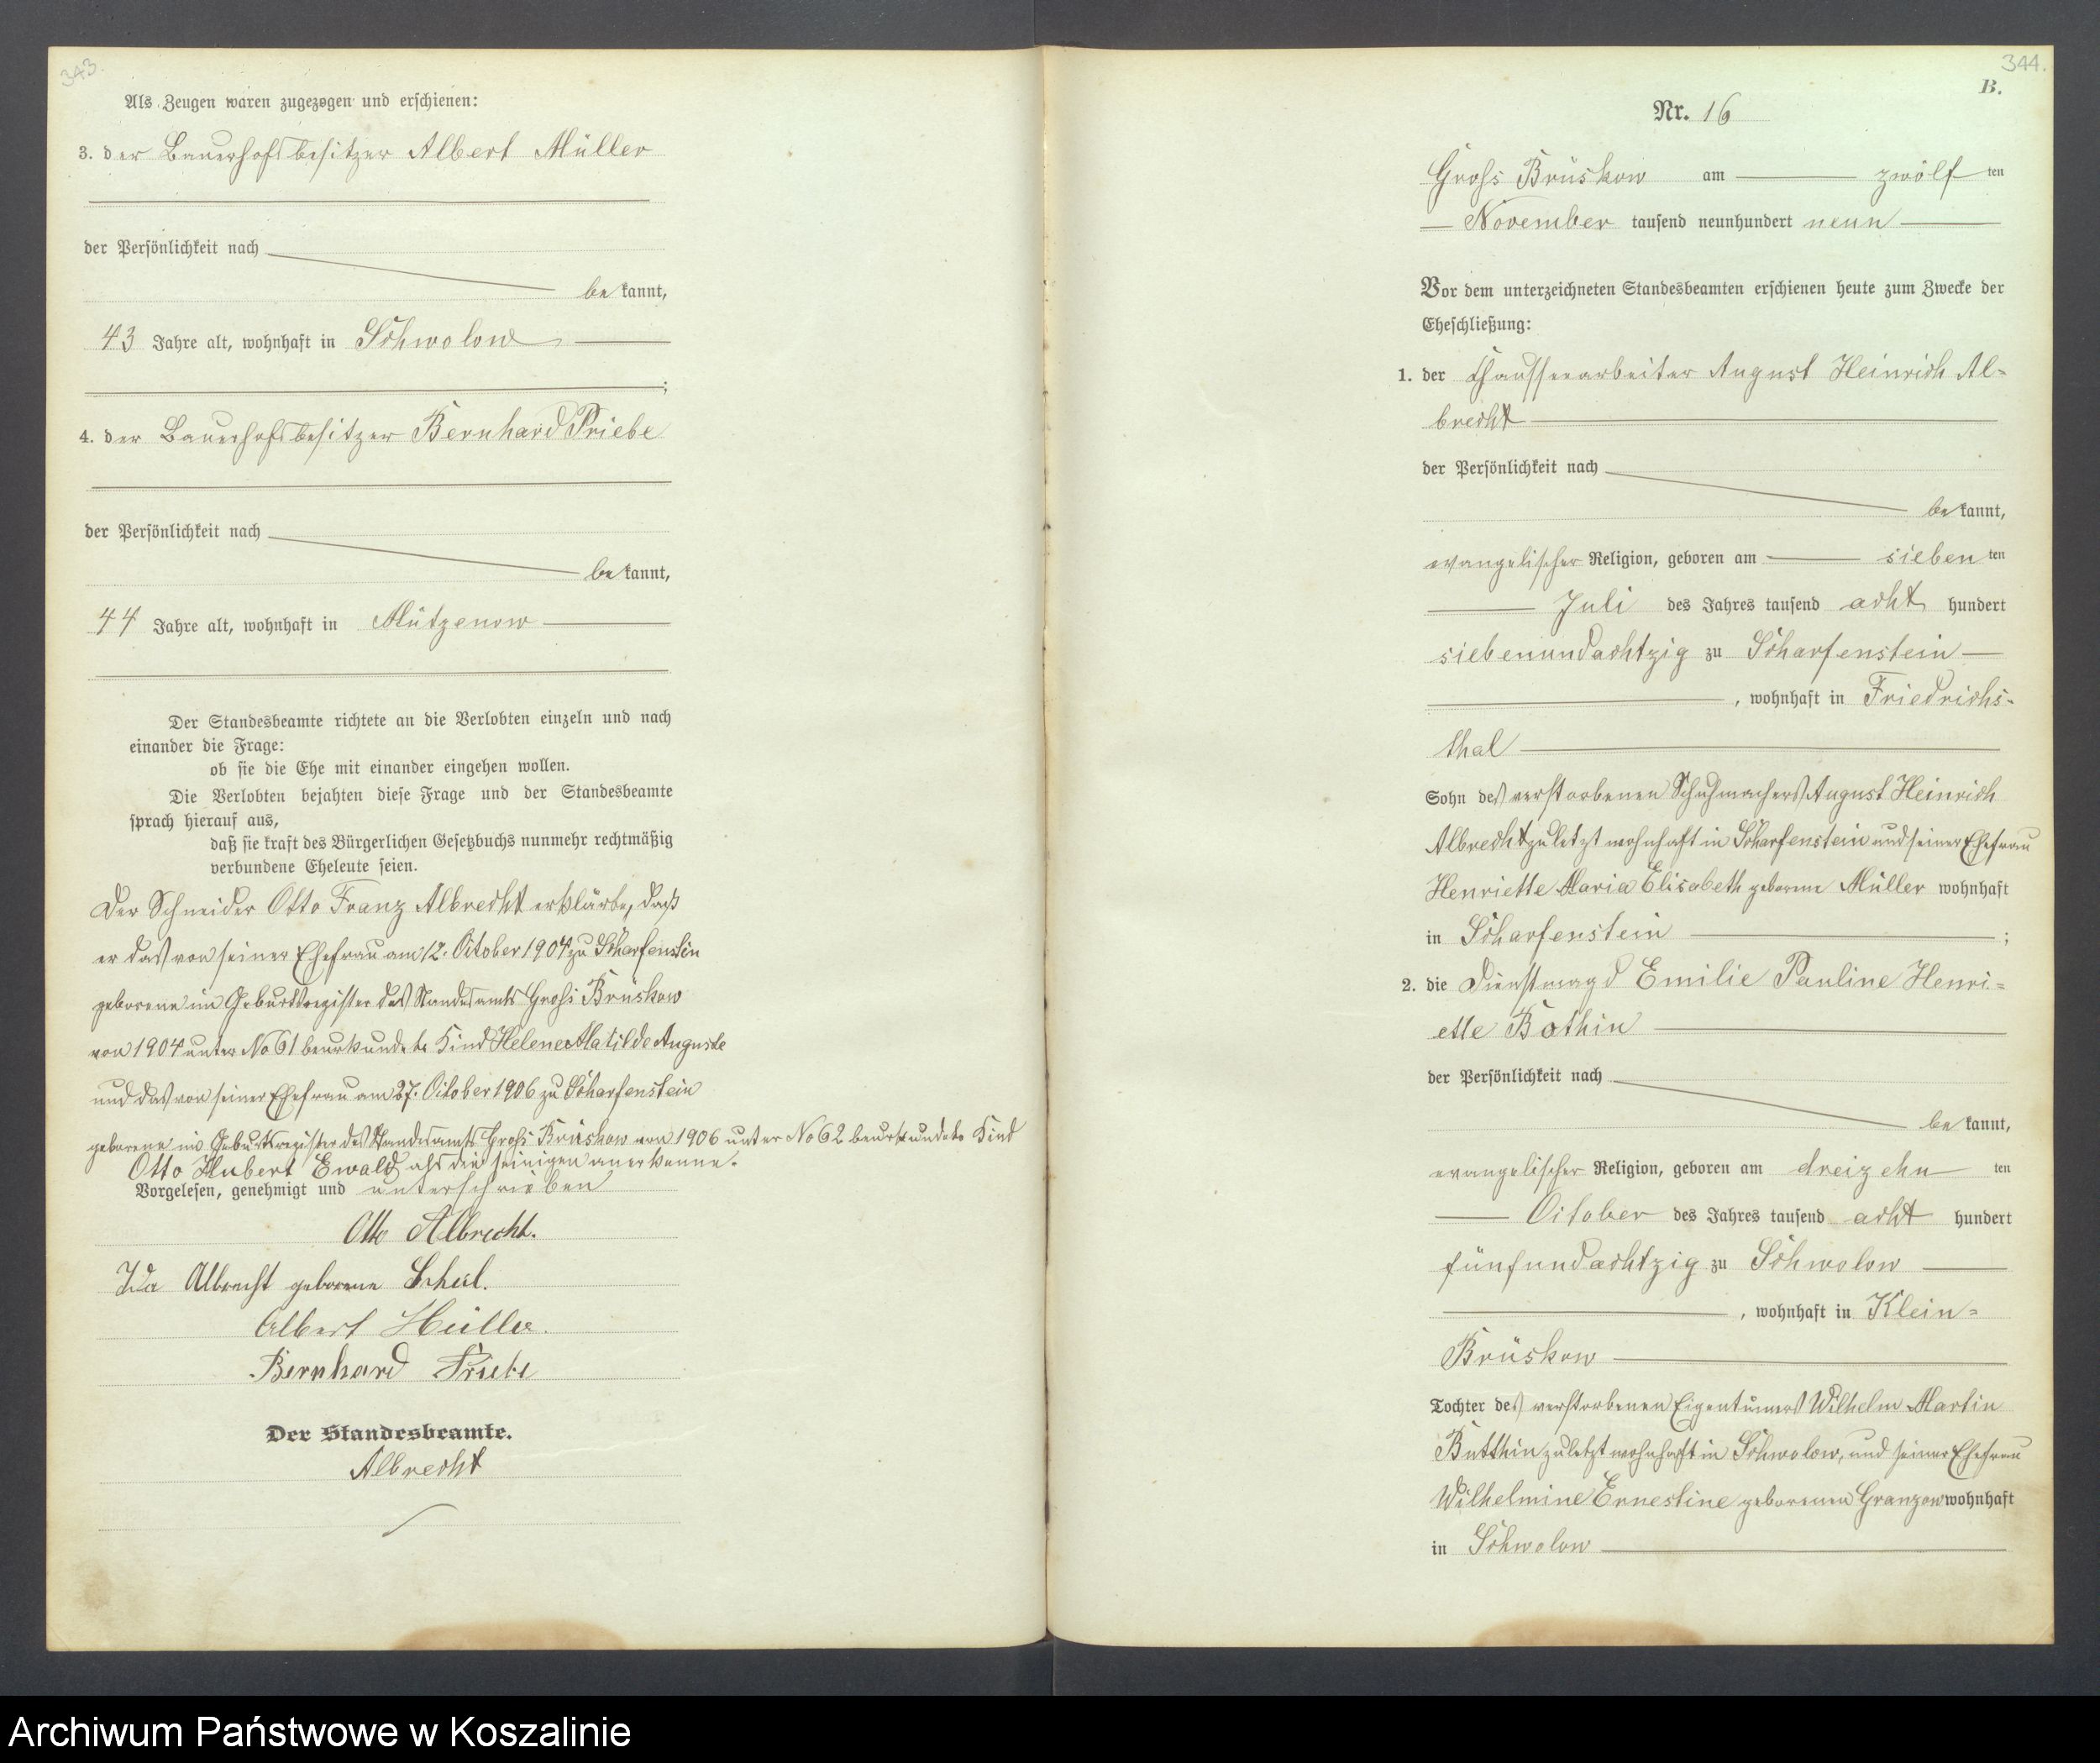 343.
Als Zeugen waren zugezogen und erschienen:
3. der Bauerhofsbesitzer Albert Müller
der Persönlichkeit nach
be kannt,
43 Jahre alt, wohnhaft in Schwolow
;
4. der Bauerhofsbesitzer Bernhard Priebe
der Persönlichkeit nach
be kannt,
44 Jahre alt, wohnhaft in Mützenow
Der Standesbeamte richtete an die Verlobten einzeln und nach
einander die Frage:
ob sie die Ehe mit einander eingehen wollen.
Die Verlobten bejahten diese Frage und der Standesbeamte
sprach hierauf aus,
daß sie kraft des Bürgerlichen Gesetzbuchs nunmehr rechtmäßig
verbundene Eheleute seien.
Der Schneider Otto Franz Albrecht erklärte, daß
er das von seiner Ehefrau am 12. October 1904 zu Scharfenstein
geborene im Geburtsregister des Standesamts Groß Brüskow
von 1904 unter No 61 beurkundete Kind Helene Matilde Auguste
und das von seiner Ehefrau am 27. October 1906 zu Scharfenstein
geborene im Geburtsregister des Standesamts Groß Brüskow von 1906 unter No 62 beurkundete Kind
Otto Hubert Ewald als die seinigen anerkenne.
Vorgelesen, genehmigt und unterschrieben
Otto Albrecht.
Ida Albrecht geborene
Albert Müller.
Bernhard Priebe
Der Standesbeamte.
Albrecht
344.
B.
Nr. 16
Groß Brüskow am zwölf ten
November tausend neunhundert neun
Vor dem unterzeichneten Standesbeamten erschienen heute zum Zwecke der
Eheschließung:
1. der Chausseearbeiter August Heinrich Al-
brecht
der Persönlichkeit nach
be kannt,
evangelischer Religion, geboren am sieben ten
Juli des Jahres tausend acht hundert
siebenundachtzig zu Scharfenstein
, wohnhaft in Friedrichs-
thal
Sohn des verstorbenen Schuhmachers August Heinrich
Albrecht zuletzt wohnhaft in Scharfenstein und seiner Ehefrau
Henriette Maria Elisabeth geborene Müller wohnhaft
in Scharfenstein ;
2. die Dienstmagd Emilie Pauline Henri-
ette Bothin
der Persönlichkeit nach
be kannt,
evangelischer Religion, geboren am dreizehn ten
October des Jahres tausend acht hundert
fünfundachtzig zu Schwolow
, wohnhaft in Klein-
Brüskow
Tochter des verstorbenen Eigentümers Wilhelm Martin
Butthin zuletzt wohnhaft in Schwolow, und seiner Ehefrau
Wilhelmine Ernestine geborenen Granzow wohnhaft
in Schwolow
Archiwum Państwowe w Koszalinie